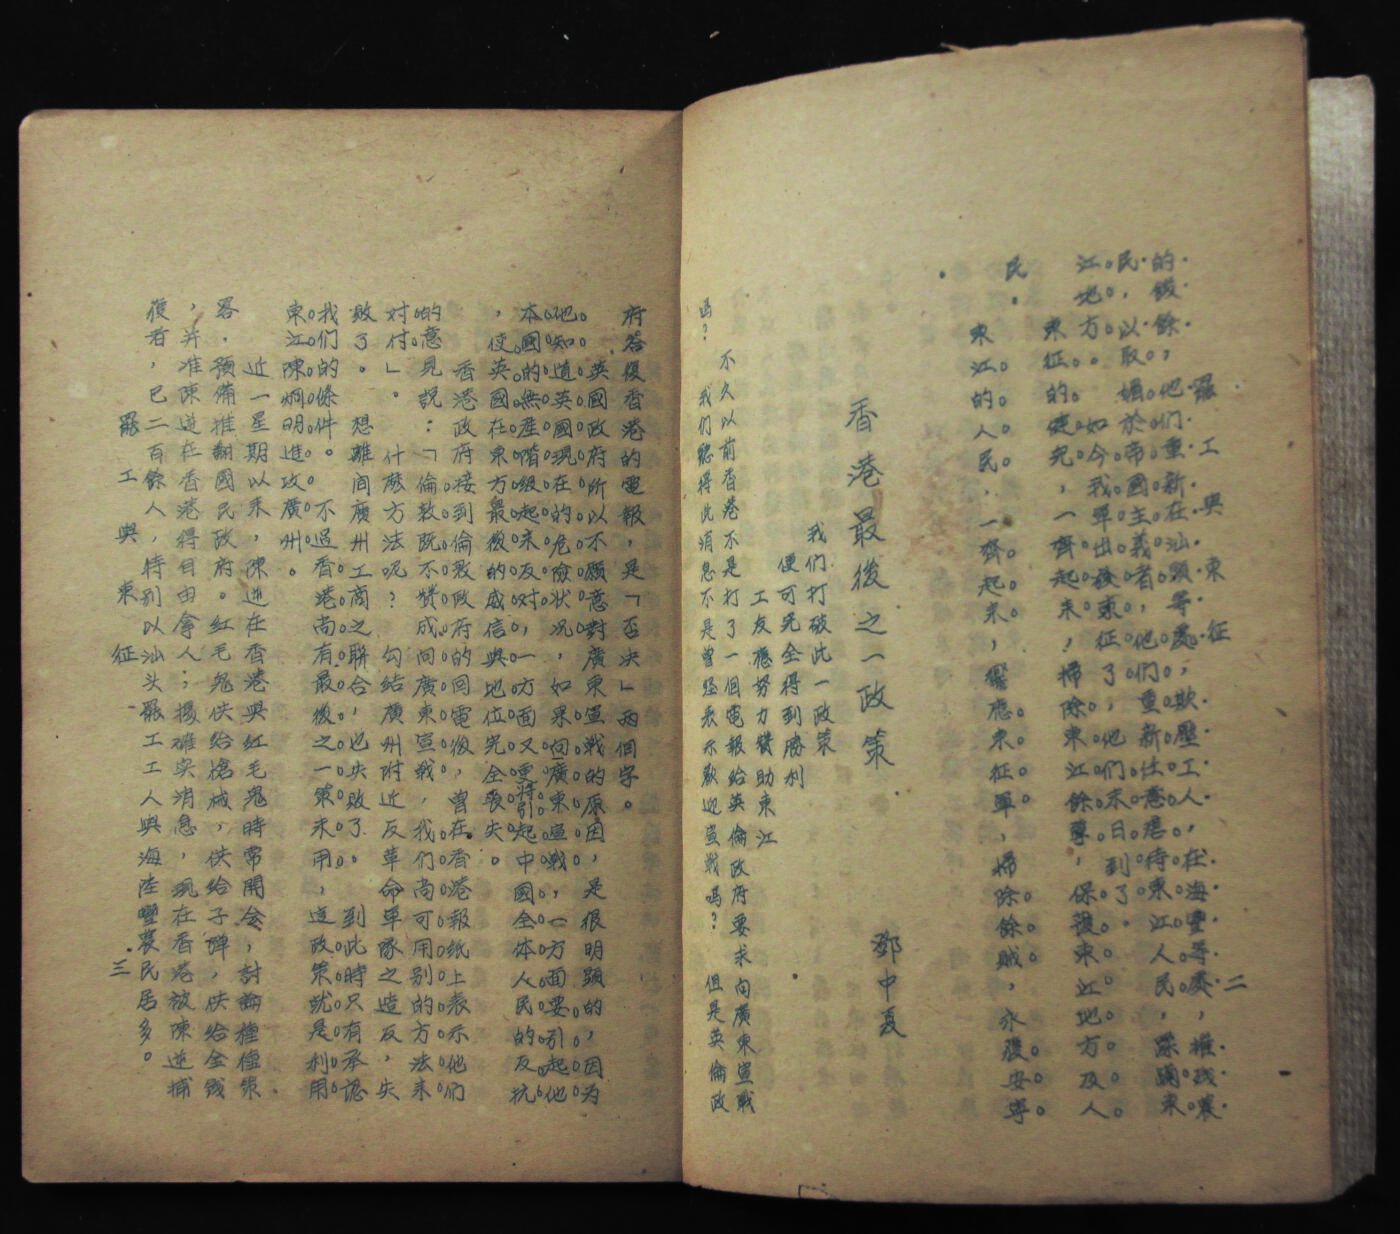 羅工與東征 二
的錢餘，他们重新在汕頭等處，欺壓工人，在海豐等處，摧残農
民，以取媚於帝國主義者，他们重新任意虐待東江人民，蹂躪東
江地方。如今我軍出發東征了，他们末日到了。
東征的健兒，一齊起来，掃除東江餘孽，保護東江地方及人
民。
東江的人民，一齊起来，響應東征軍，掃除餘賊，永獲安寧。
香港最後之一政策 鄧中夏
我们打破此一政策
便可完全得到勝利
工友應努力贊助東江
不久以前香港不是打了一個電報給英倫政府要求向廣東宣戰
嗎？我们聽得此消息不是曾經表示歡迎宣戰嗎？但是英倫政
府答復香港的電報，是「否決」兩個字。
英國政府所以不願意對廣東宣戰的原因，是很明顕的，因为
他知道英國現在的危險状况，如果向廣東宣戰，一方面要引起他
本國的無產階级起来反对，一方面又更將引起中國全体人民的反抗
，使英國在東方最後的威信與地位完全喪失。
香港政府接到倫敦政府的回電後，曾在香港報纸上表示他们
的意見説：「倫敦既不赞成向廣東宣戰，我们尚可用别的方法来
对付」。什麽方法呢？勾结廣州附近反革命軍隊之造反，失
敗了。想離间廣州工商之聯合，也失敗了。到此時只有承認
我们的條件。不過香港尚有最後之一策未用，這政策就是利用
東江陳烱明進攻廣州。
近一星期以来，陳逆在香港與红毛鬼時常開会，討論種種策
畧，預備推翻國民政府。红毛鬼供給槍械，供给子彈，供给金錢
，并准陳逆在香港得自由拿人；據难实消息，現在香港被陳逆捕
復者，已二百餘人，特别以汕头罷工工人與海陸豐農民居多。
羅工與東征 三